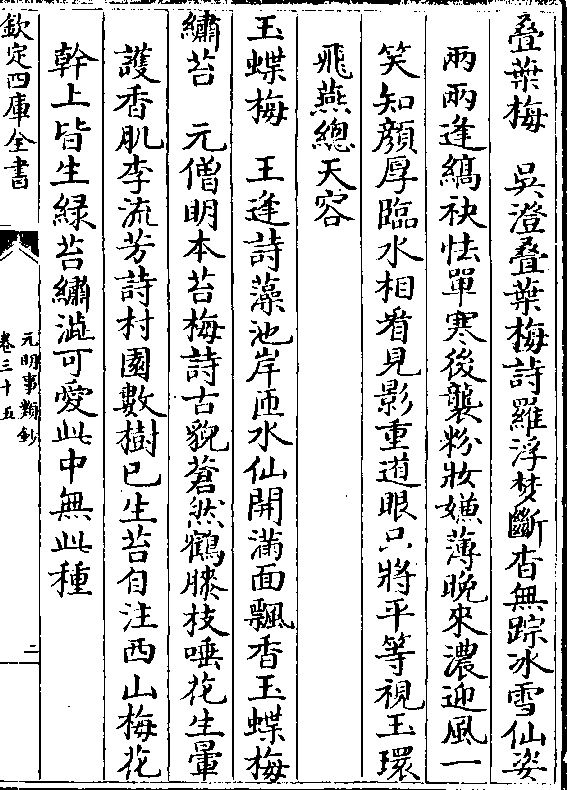 疊葉梅　吳澄疊葉梅詩羅浮夢斷杳無踪冰雪仙姿
兩兩逢縞袂怯單寒後襲粉妝嫌薄晚來濃迎風一
笑知顔厚臨水相看見影重道眼只將平等視玉環
飛燕總天容
玉蝶梅　王逢詩藻池岸匝水仙開滿面飄香玉蝶梅
繡苔　元僧明本苔梅詩古貌蒼然鶴膝枝唾花生暈
護香肌李流芳詩村園數樹已生苔自注西山梅花
幹上皆生緑苔繡澁可愛此中無此種
欽定四庫全書
元明事類鈔
卷三十五
二